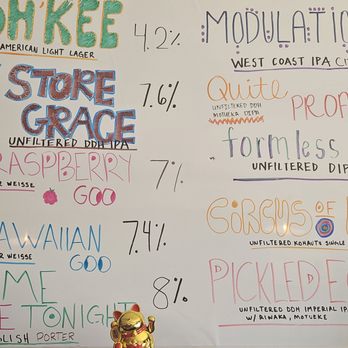 OH'KEE
AMERICAN LIGHT LAGER
4.2%
STORE
GRACE
UNFILTERED DDH IPA
7.6%
RASPBERRY
WEISSE
GOO
7%
AWAIIAN
WEISSE
GOO
7.4%
ME
TONIGHT
PORTER
8%
MODULATIO
WEST COAST IPA
Quite
UNFILTERED DDH
MOTUEKA DIPA
PROF
formless
UNFILTERED DIP
CIRCUS OF
UNFILTERED KOHATU SINGLE
PICKLED
UNFILTERED DDH IMPERIAL IPA
W/ RIWAKA, MOTUEKA